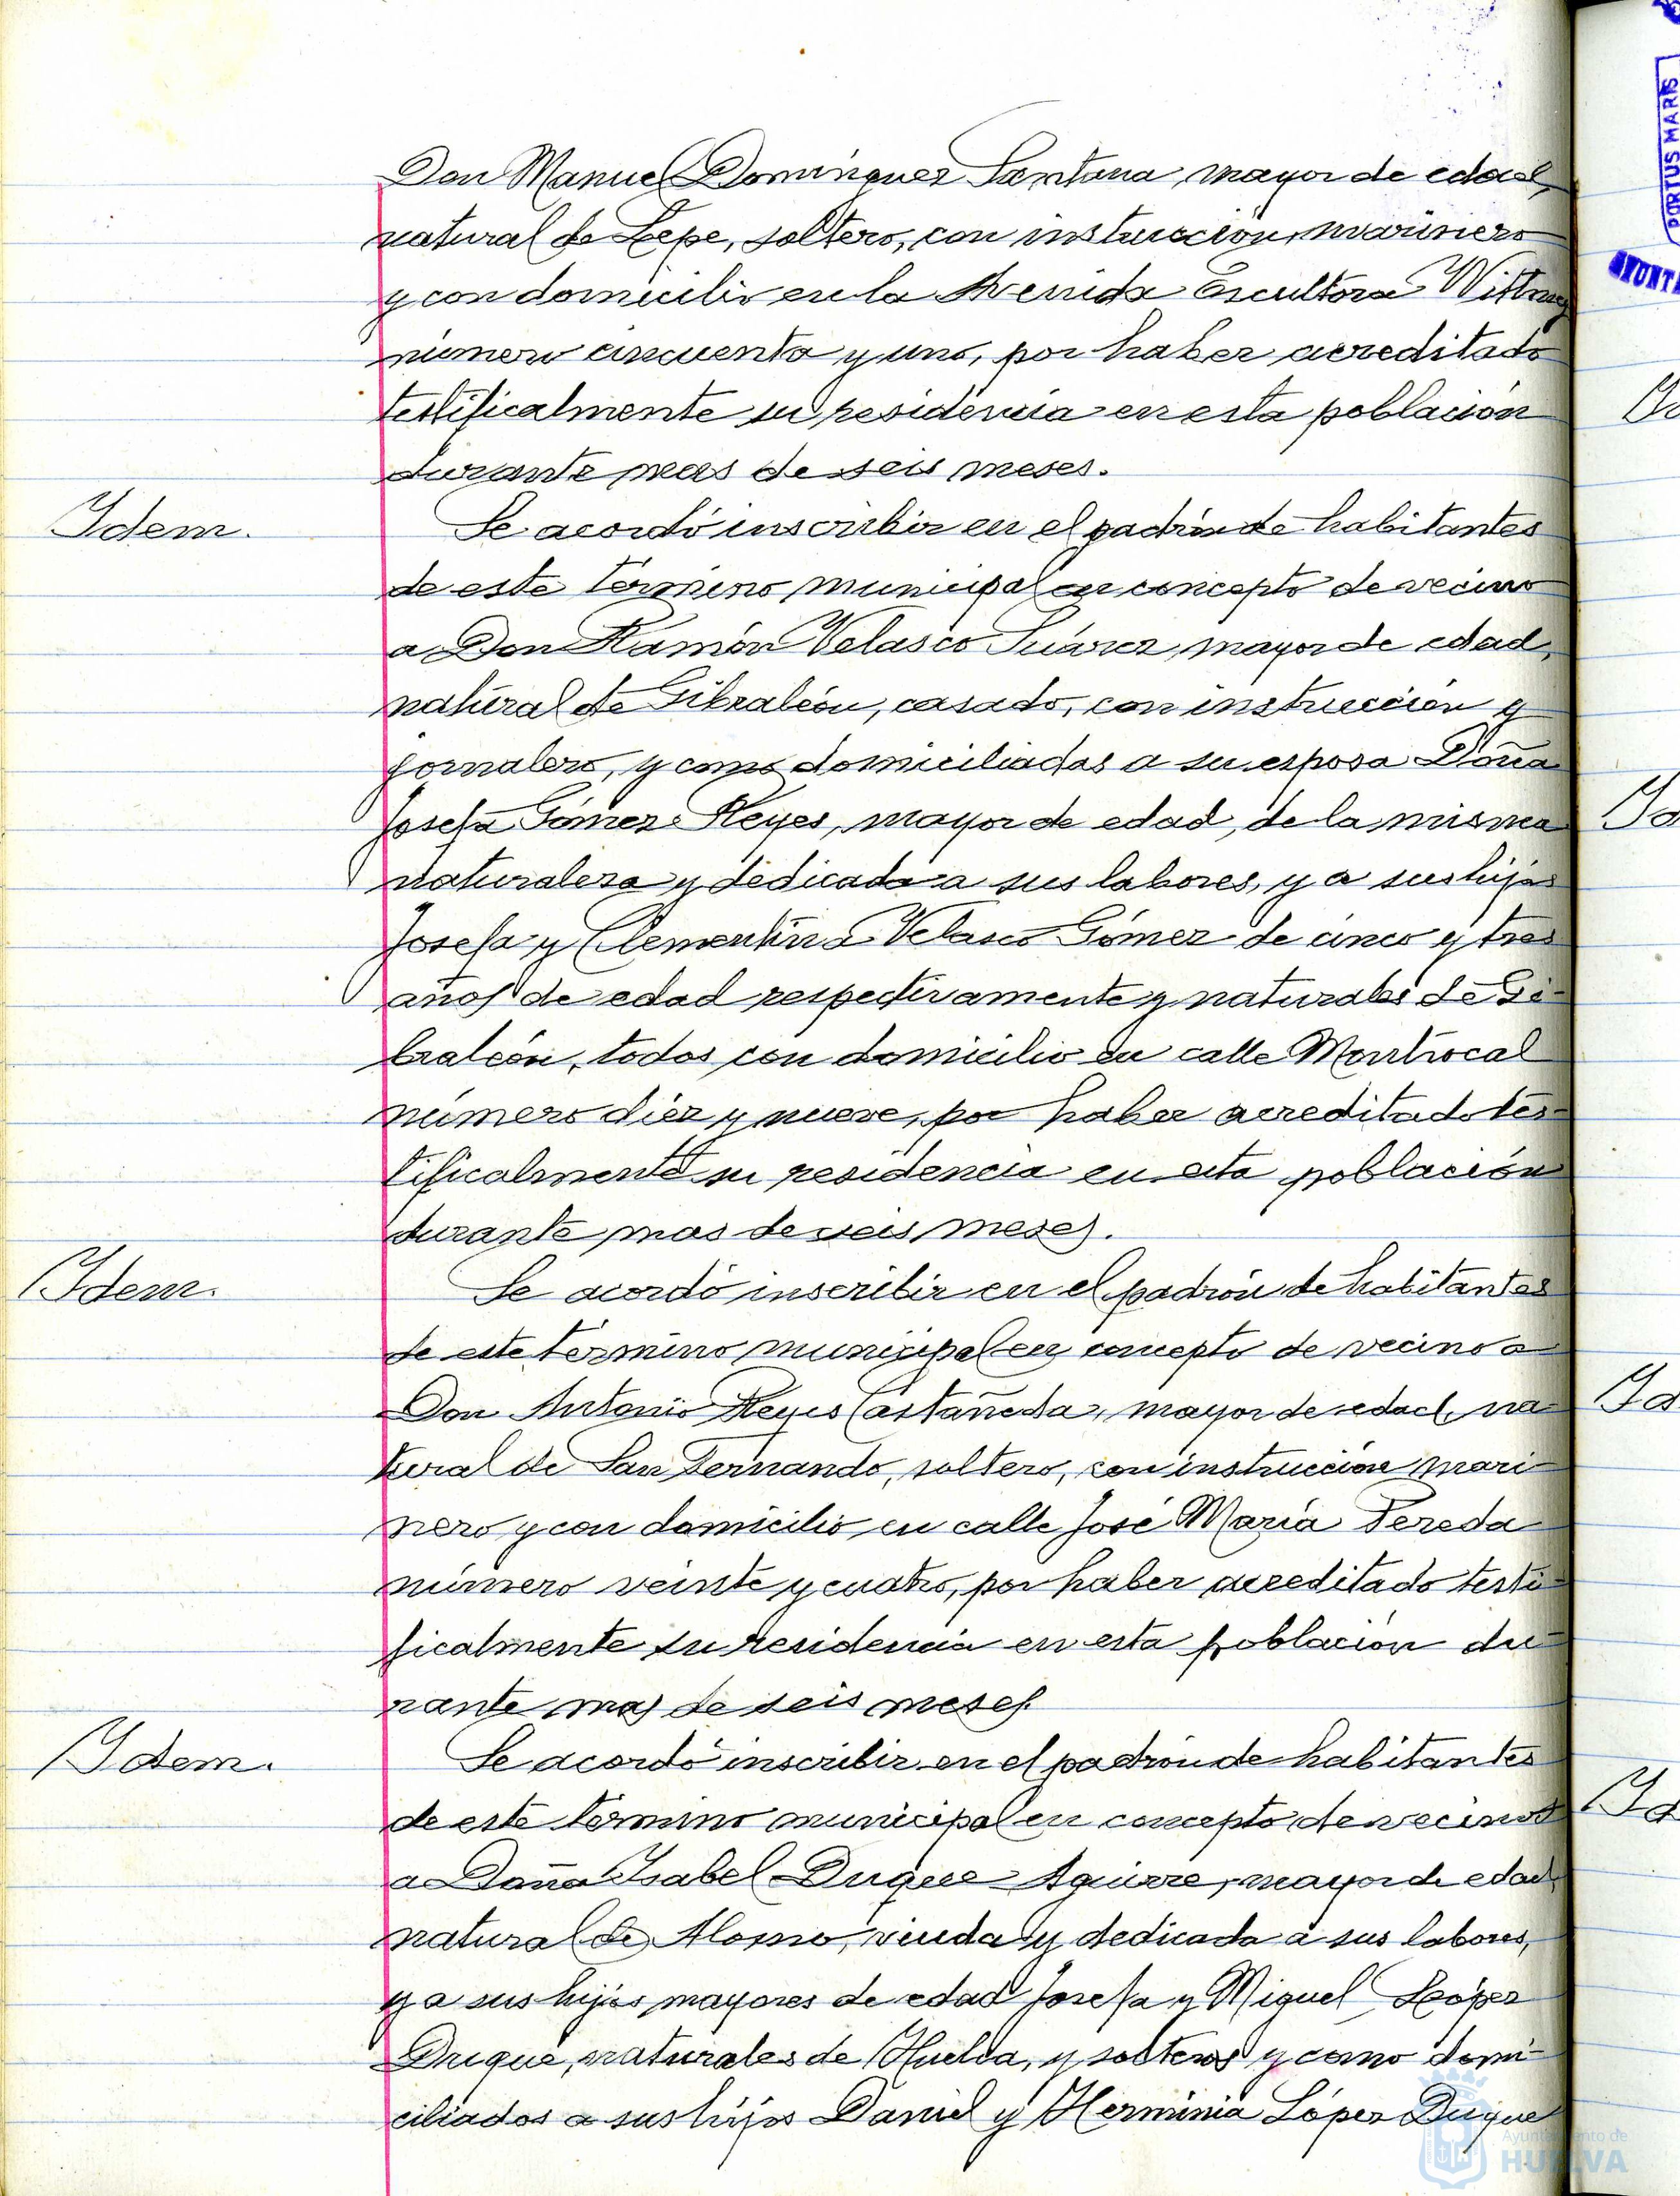 Don Manuel Dominguez Santana, mayor de edad,
natural de Lepe, soltero, con instrucción, marinero
y con domicilio en la Avenida Escultora Witney
número cincuenta y uno, por haber acreditado
testificalmente su residencia en esta población
durante mas de seis meses.
Idem.
Se acordó inscribir en el padrón de habitantes
de este término municipal en concepto de vecino
a Don Ramón Velasco Suárez, mayor de edad,
natural de Gibraleón, casado, con instrucción y
jornalero, y como domiciliadas a su esposa Doña
Josefa Gómez Reyes, mayor de edad, de la misma
naturaleza y dedicada a sus labores, y a sus hijas
Josefa y Clementina Velasco Gómez de cinco y tres
años de edad respectivamente y naturales de Gi-
braleón, todos con domicilio en calle Montrocal
número diez y nueve, por haber acreditado tes-
tificalmente su residencia en esta población
durante mas de seis meses.
Idem.
Se acordó inscribir en el padrón de habitantes
de este término municipal en concepto de vecino a
Don Antonio Reyes Castañeda, mayor de edad, na-
tural de San Fernando, soltero, con instrucción mari-
nero y con domicilio en calle José María Pereda
número veinte y cuatro, por haber acreditado testi-
ficalmente su residencia en esta población du-
rante mas de seis meses.
Idem.
Se acordó inscribir en el padrón de habitantes
de este término municipal en concepto de vecinos
a Doña Isabel Duque Aguirre, mayor de edad,
natural de Alosno, viuda y dedicada a sus labores,
y a sus hijos mayores de edad Josefa y Miguel López
Duque, naturales de Huelva, y solteros y como domi-
ciliados a sus hijos Daniel y Herminia López Duque
PORTUS MARIS
Ayuntamiento de
HUELVA